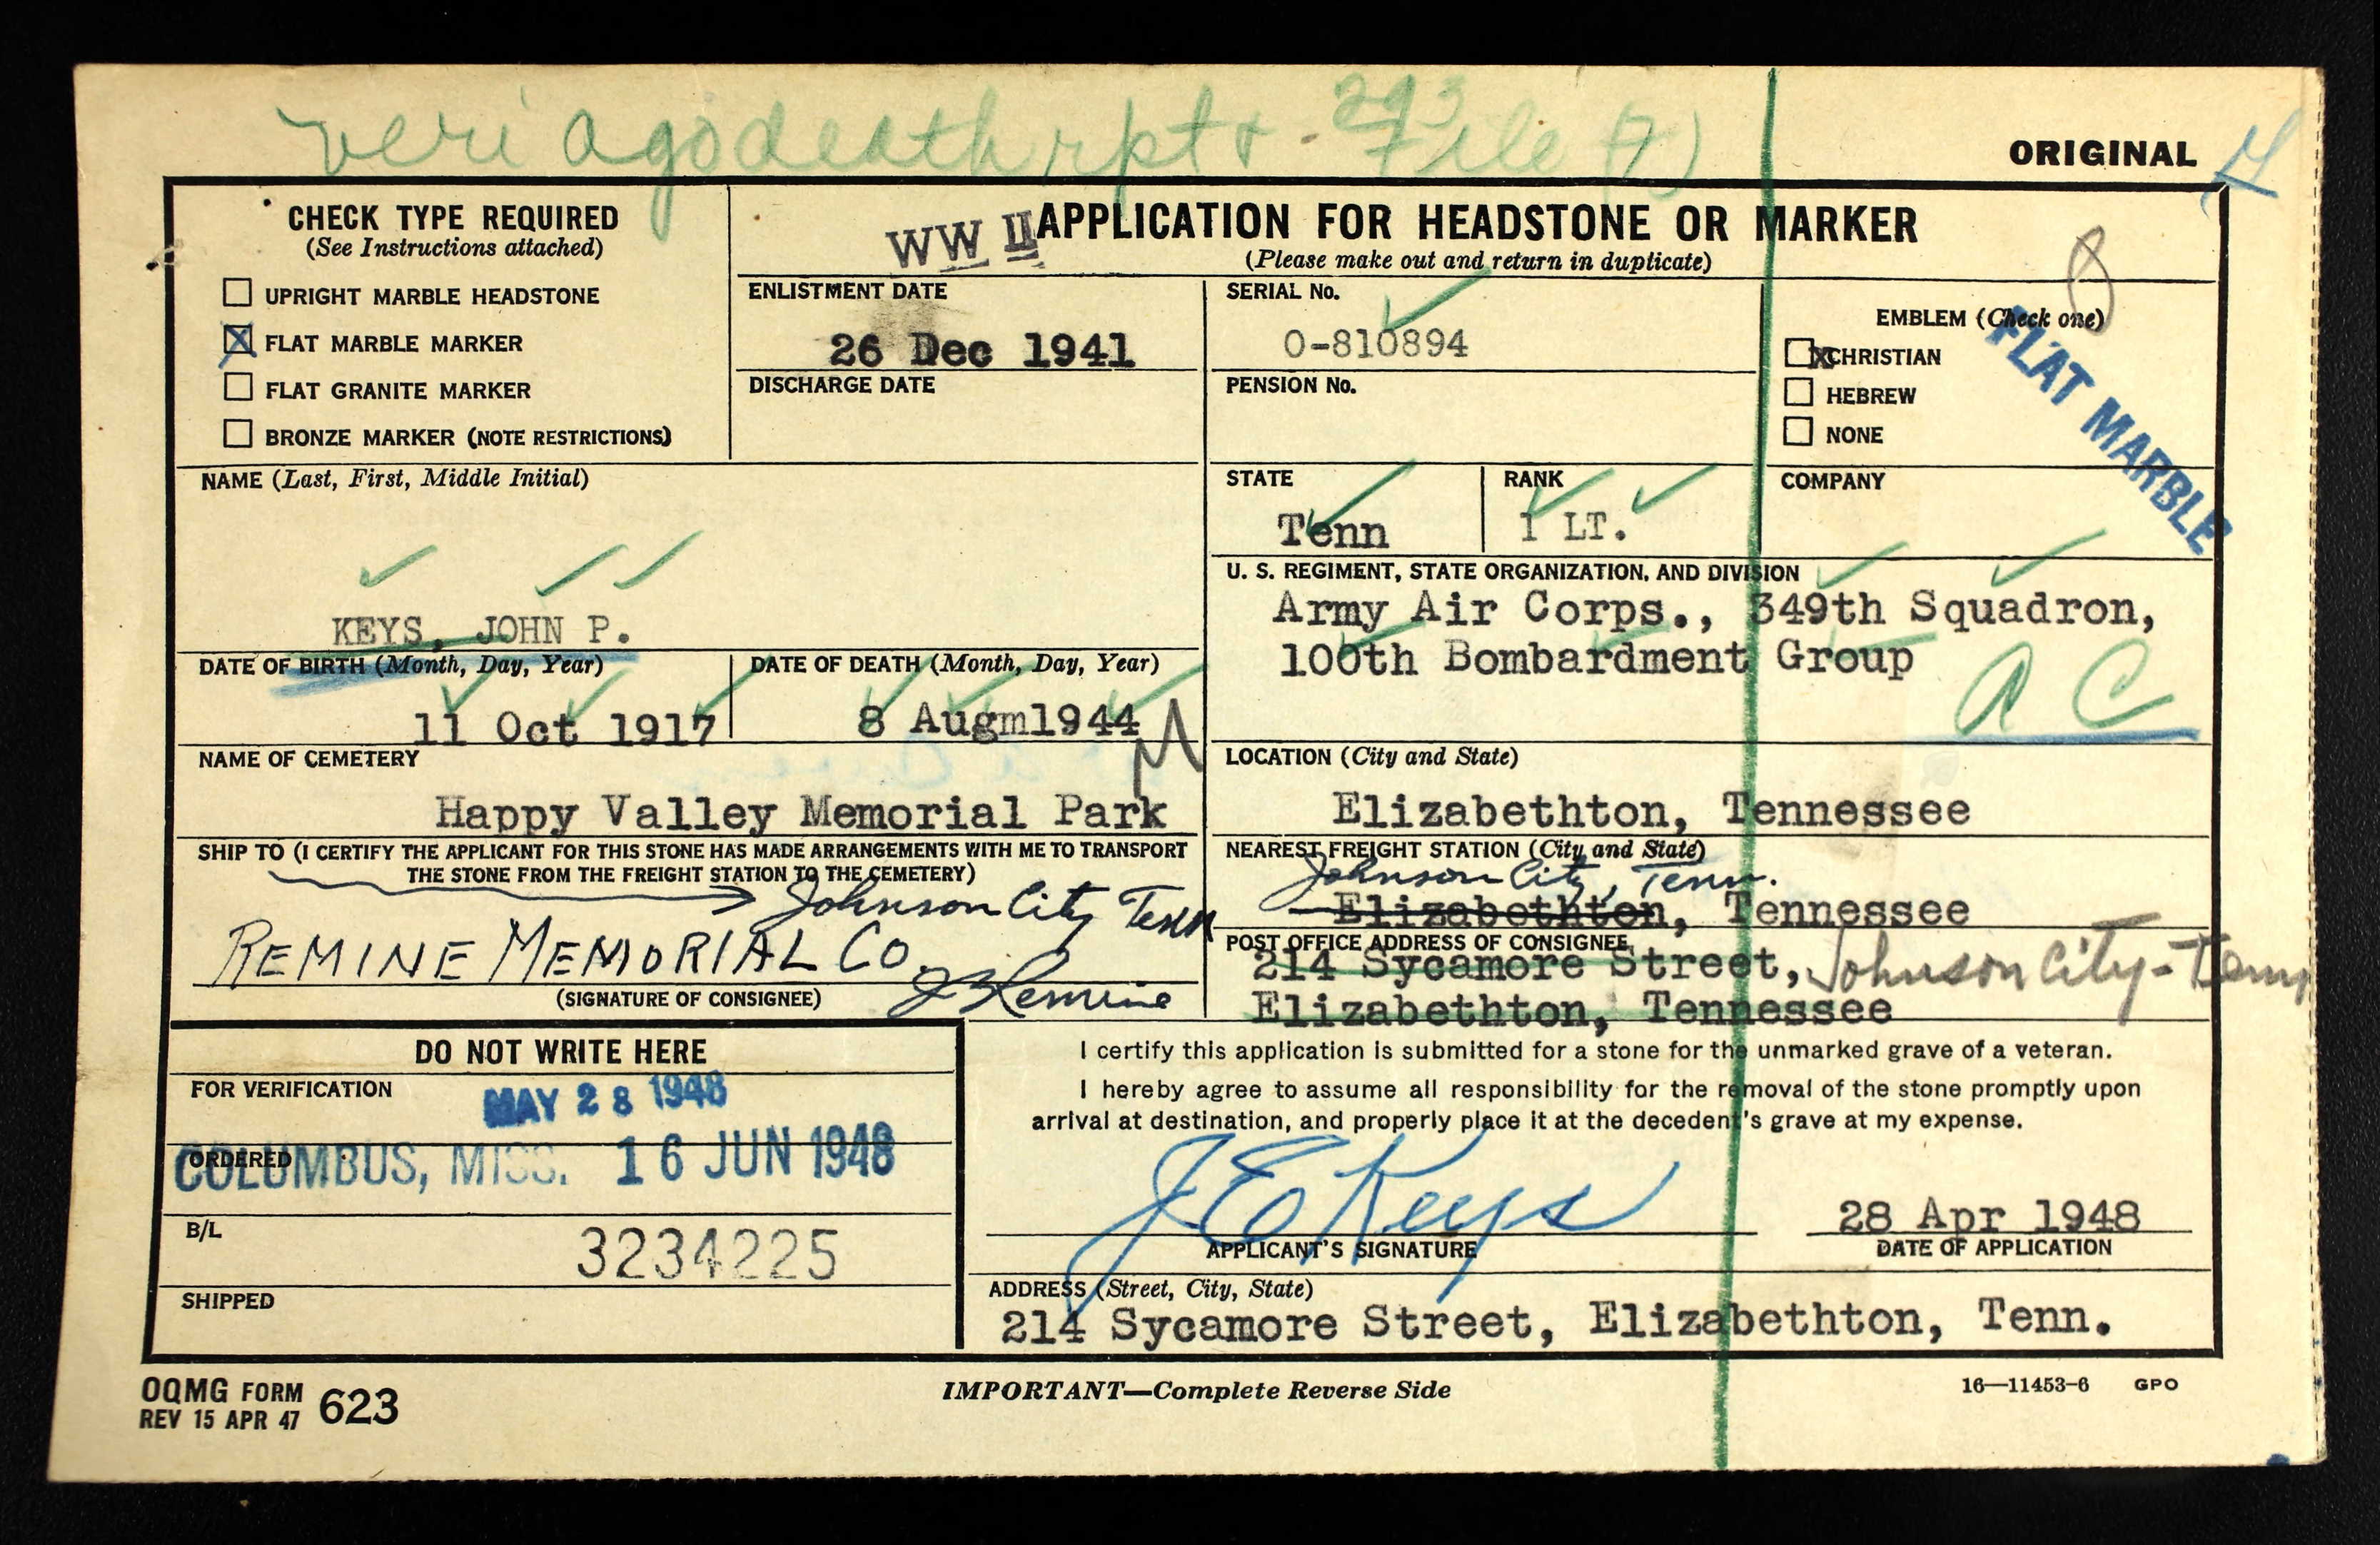 veri ago death rpt & 293 File (7)
ORIGINAL
CHECK TYPE REQUIRED
(See Instructions attached)
UPRIGHT MARBLE HEADSTONE
X FLAT MARBLE MARKER
FLAT GRANITE MARKER
BRONZE MARKER (NOTE RESTRICTIONS)
WW II APPLICATION FOR HEADSTONE OR MARKER
(Please make out and return in duplicate)
ENLISTMENT DATE
26 Dec 1941
DISCHARGE DATE
SERIAL No.
O-810894
PENSION No.
EMBLEM (Check one)
X CHRISTIAN
HEBREW
NONE
FLAT MARBLE
NAME (Last, First, Middle Initial)
KEYS, JOHN P.
STATE
Tenn
RANK
1 LT.
COMPANY
U. S. REGIMENT, STATE ORGANIZATION, AND DIVISION
Army Air Corps., 349th Squadron,
100th Bombardment Group
A C
DATE OF BIRTH (Month, Day, Year)
11 Oct 1917
DATE OF DEATH (Month, Day, Year)
8 Augm1944
M
NAME OF CEMETERY
Happy Valley Memorial Park
LOCATION (City and State)
Elizabethton, Tennessee
SHIP TO (I CERTIFY THE APPLICANT FOR THIS STONE HAS MADE ARRANGEMENTS WITH ME TO TRANSPORT
THE STONE FROM THE FREIGHT STATION TO THE CEMETERY)
Johnson City Tenn
REMINE MEMORIAL CO.
(SIGNATURE OF CONSIGNEE)
Remine
NEAREST FREIGHT STATION (City and State)
Johnson City, Tenn.
Elizabethton, Tennessee
POST OFFICE ADDRESS OF CONSIGNEE
214 Sycamore Street, Johnson City - Tenn
Elizabethton, Tennessee
DO NOT WRITE HERE
FOR VERIFICATION
MAY 28 1948
ORDERED
COLUMBUS, MISS. 16 JUN 1948
B/L
3234225
SHIPPED
I certify this application is submitted for a stone for the unmarked grave of a veteran.
I hereby agree to assume all responsibility for the removal of the stone promptly upon
arrival at destination, and properly place it at the decedent's grave at my expense.
J E Keys
APPLICANT'S SIGNATURE
28 Apr 1948
DATE OF APPLICATION
ADDRESS (Street, City, State)
214 Sycamore Street, Elizabethton, Tenn.
OQMG FORM 623
REV 15 APR 47
IMPORTANT—Complete Reverse Side
16—11453-6 GPO